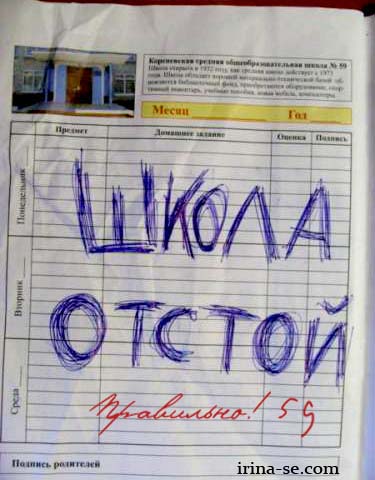 Кореневская средняя общеобразовательная школа № 59
Школа открыта в 1952 году, как средняя школа действует с 1973
года. Школа обладает хорошей материально-технической базой: об-
новляется библиотечный фонд, приобретается оборудование, спор-
тивный инвентарь, учебные пособия, новая мебель, компьютеры.
Месяц Год
Предмет Домашнее задание Оценка Подпись
Понедельник
ШКОЛА
Вторник
ОТСТОЙ
Среда
Правильно! 5
Подпись родителей
irina-se.com